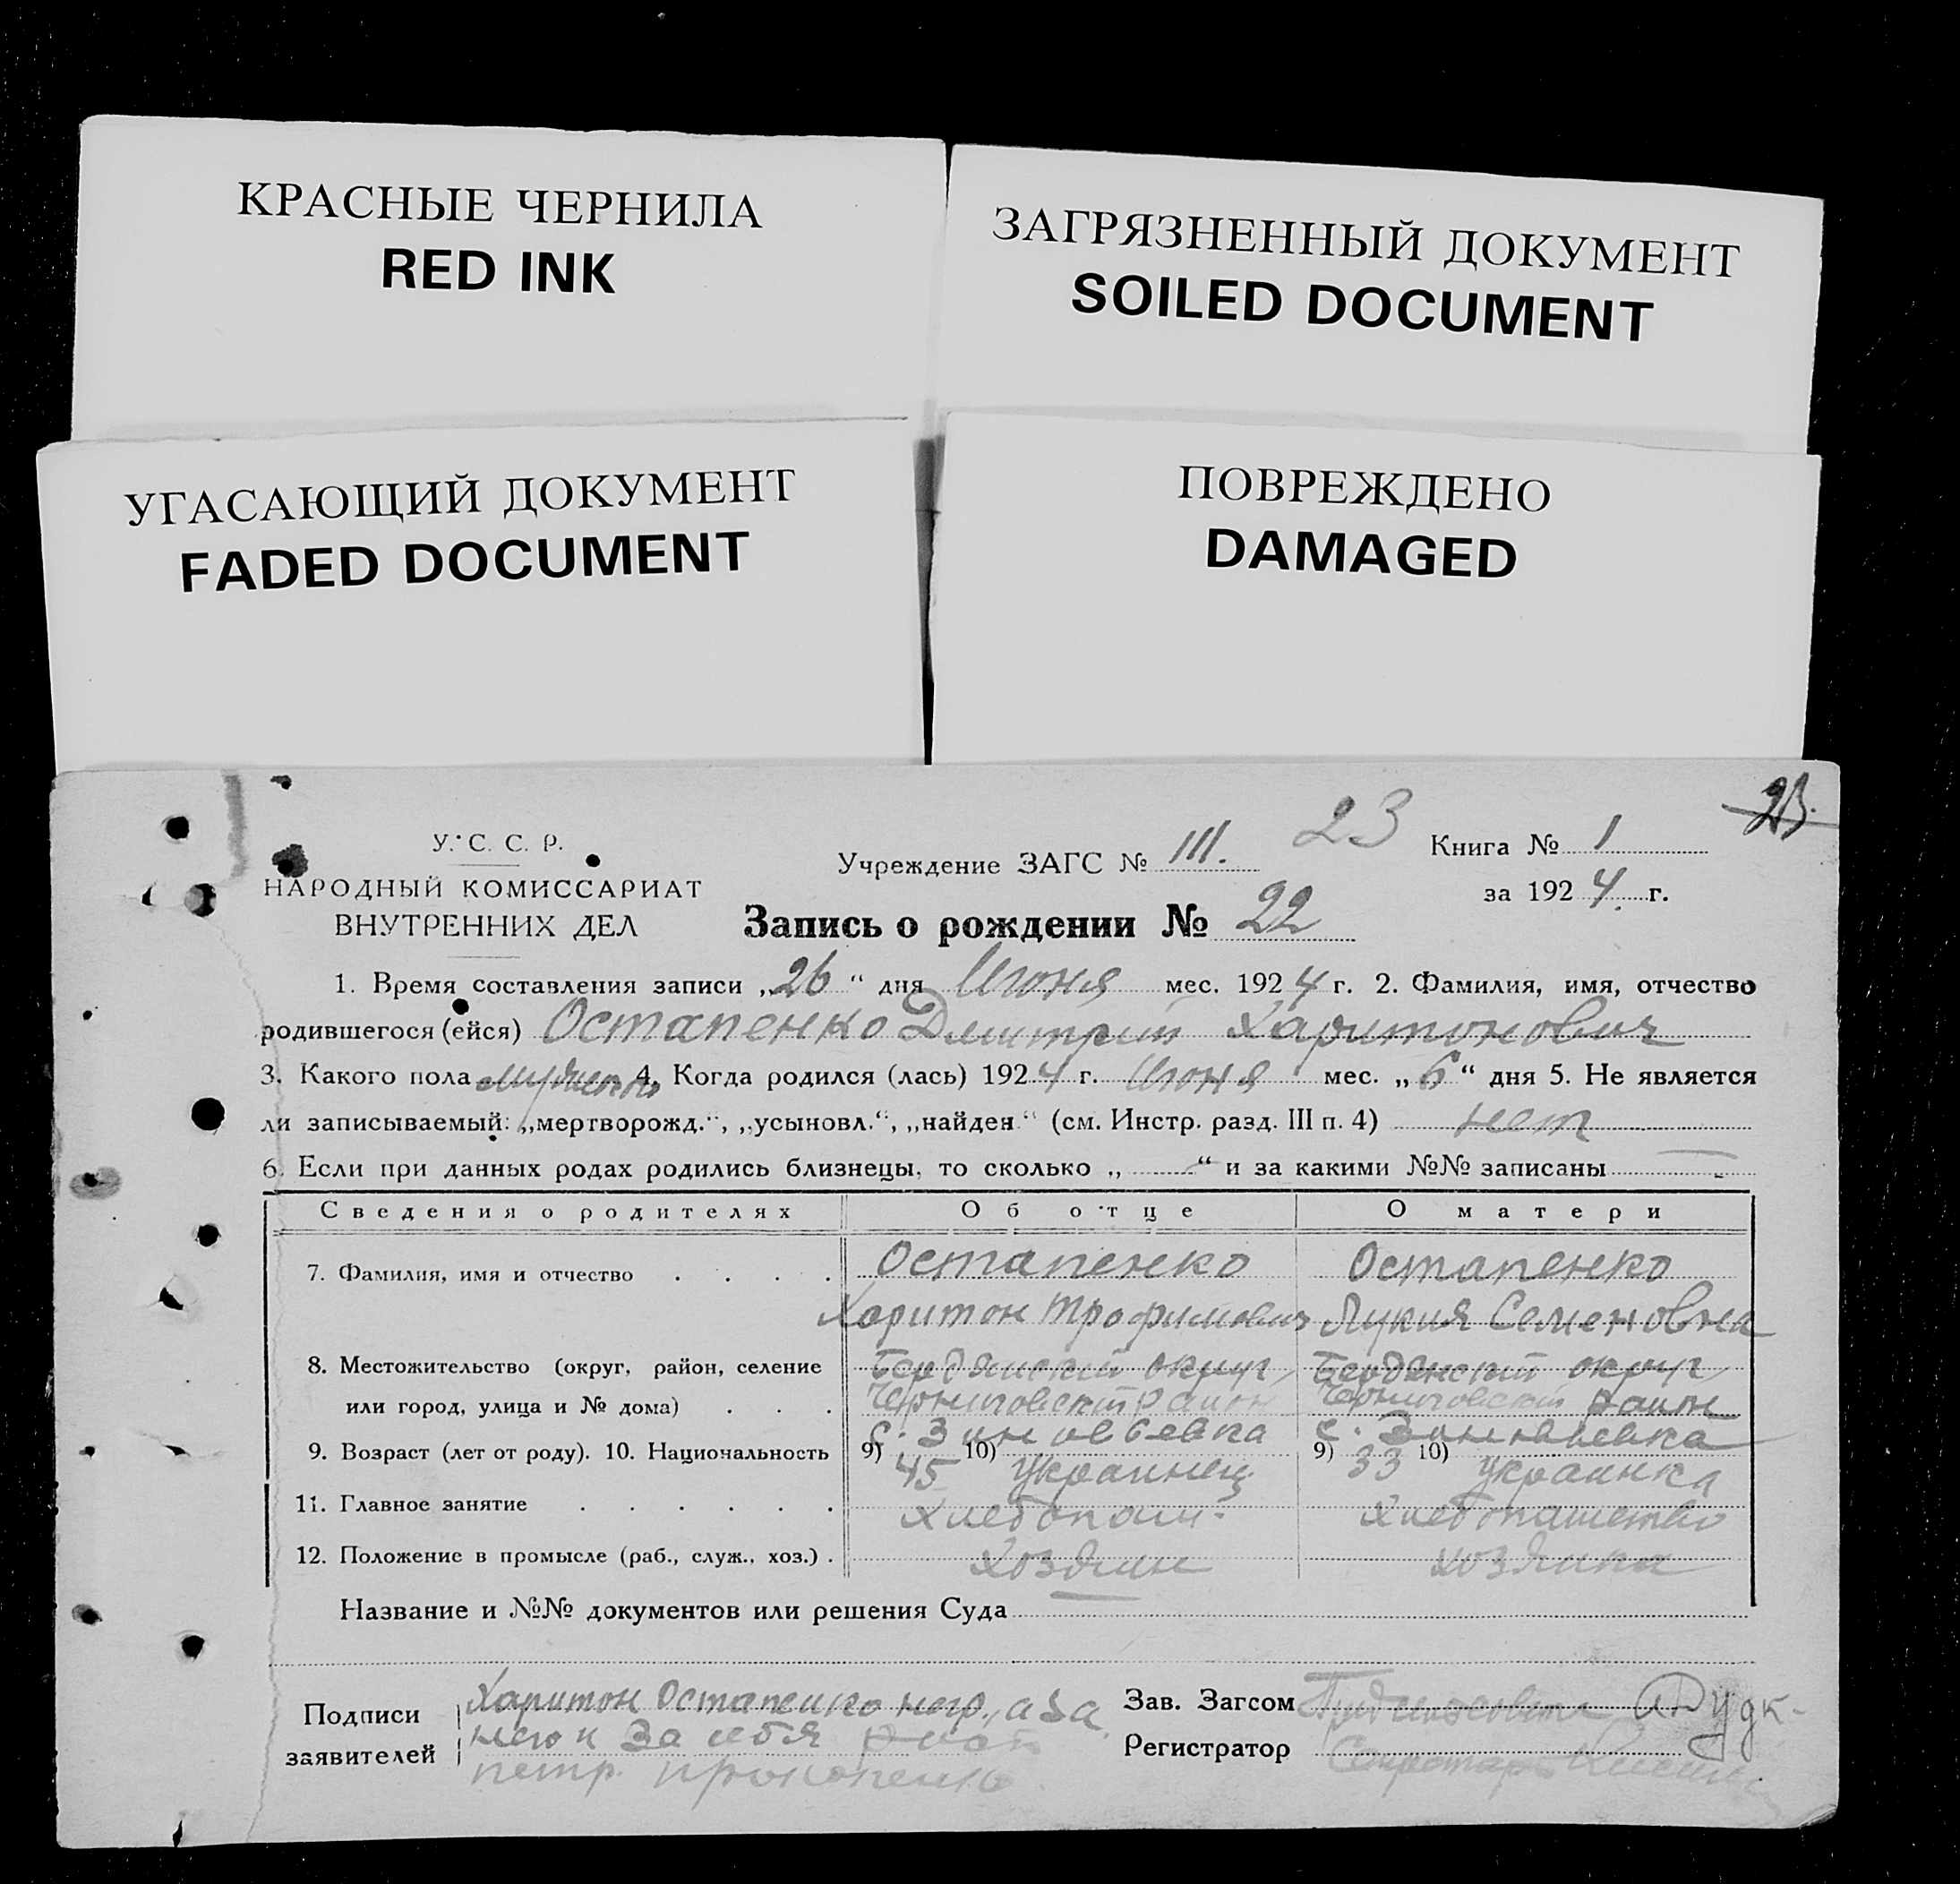 КРАСНЫЕ ЧЕРНИЛА
RED INK
ЗАГРЯЗНЕННЫЙ ДОКУМЕНТ
SOILED DOCUMENT
УГАСАЮЩИЙ ДОКУМЕНТ
FADED DOCUMENT
ПОВРЕЖДЕНО
DAMAGED
23
23
У. С. С. Р.
НАРОДНЫЙ КОМИССАРИАТ
ВНУТРЕННИХ ДЕЛ
Учреждение ЗАГС № III.
Книга № 1
за 1924 г.
Запись о рождении № 22
1. Время составления записи „26“ дня Июня мес. 1924 г. 2. Фамилия, имя, отчество
родившегося (ейся) Остапенко Дмитрий Харитонович
3. Какого пола мужского 4. Когда родился (лась) 1924 г. Июня мес. „6“ дня 5. Не является
ли записываемый: „мертворожд.“, „усыновл.“, „найден“ (см. Инстр. разд. III п. 4) нет
6. Если при данных родах родились близнецы, то сколько „ “ и за какими №№ записаны
Сведения о родителях Об отце О матери
7. Фамилия, имя и отчество . . . . Остапенко Остапенко
Харитон Трофимович Лукия Семеновна
8. Местожительство (округ, район, селение Бердянский округ Бердянский округ
или город, улица и № дома) . . . Черниговский район Черниговский район
с. Зиновьевка с. Зиновьевка
9. Возраст (лет от роду). 10. Национальность 9) 45 10) украинец 9) 33 10) украинка
11. Главное занятие . . . . . . Хлебопаш. Хлебопашество
12. Положение в промысле (раб., служ., хоз.) . Хозяин хозяйка
Название и №№ документов или решения Суда
Подписи заявителей
Харитон Остапенко негр., а за
него и за себя
петр. прокопенко
Зав. Загсом
Регистратор Секретарь